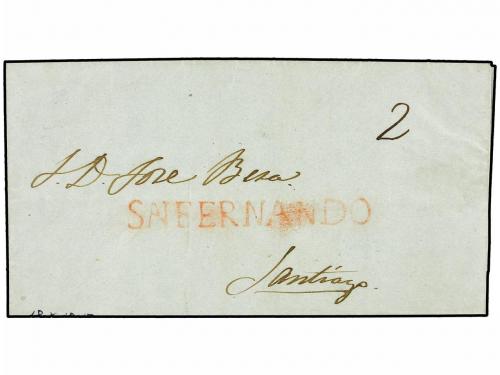 2
S. D. Jose Besa.
SN FERNANDO
Santiago.